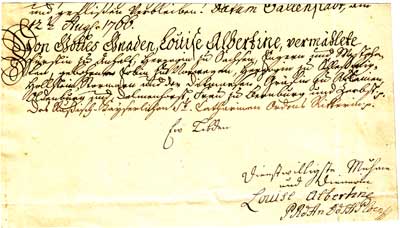 und           verbleiben. Datum Ballenstädt, am
12ten Augs. 1766.
Von Gottes Gnaden, Louise Albertine, vermählete
Fürstin zu Anhalt, Herzogin zu Sachsen, Engern und Westphalen,
gebohrne Erbin zu Norwegen, Herzogin zu Schleswig,
Hollstein, Stormarn und der Ditmarsen, Gräfin zu Askanien,
Oldenburg und Delmenhorst, Frau zu Bernburg und Zerbst,
Des Rußisch-Kayserlichen St. Catharinen Ordens Ritterin.
Ew Lbden
Dienstwilligste Muhme
und Dienerin
Louise Albertine